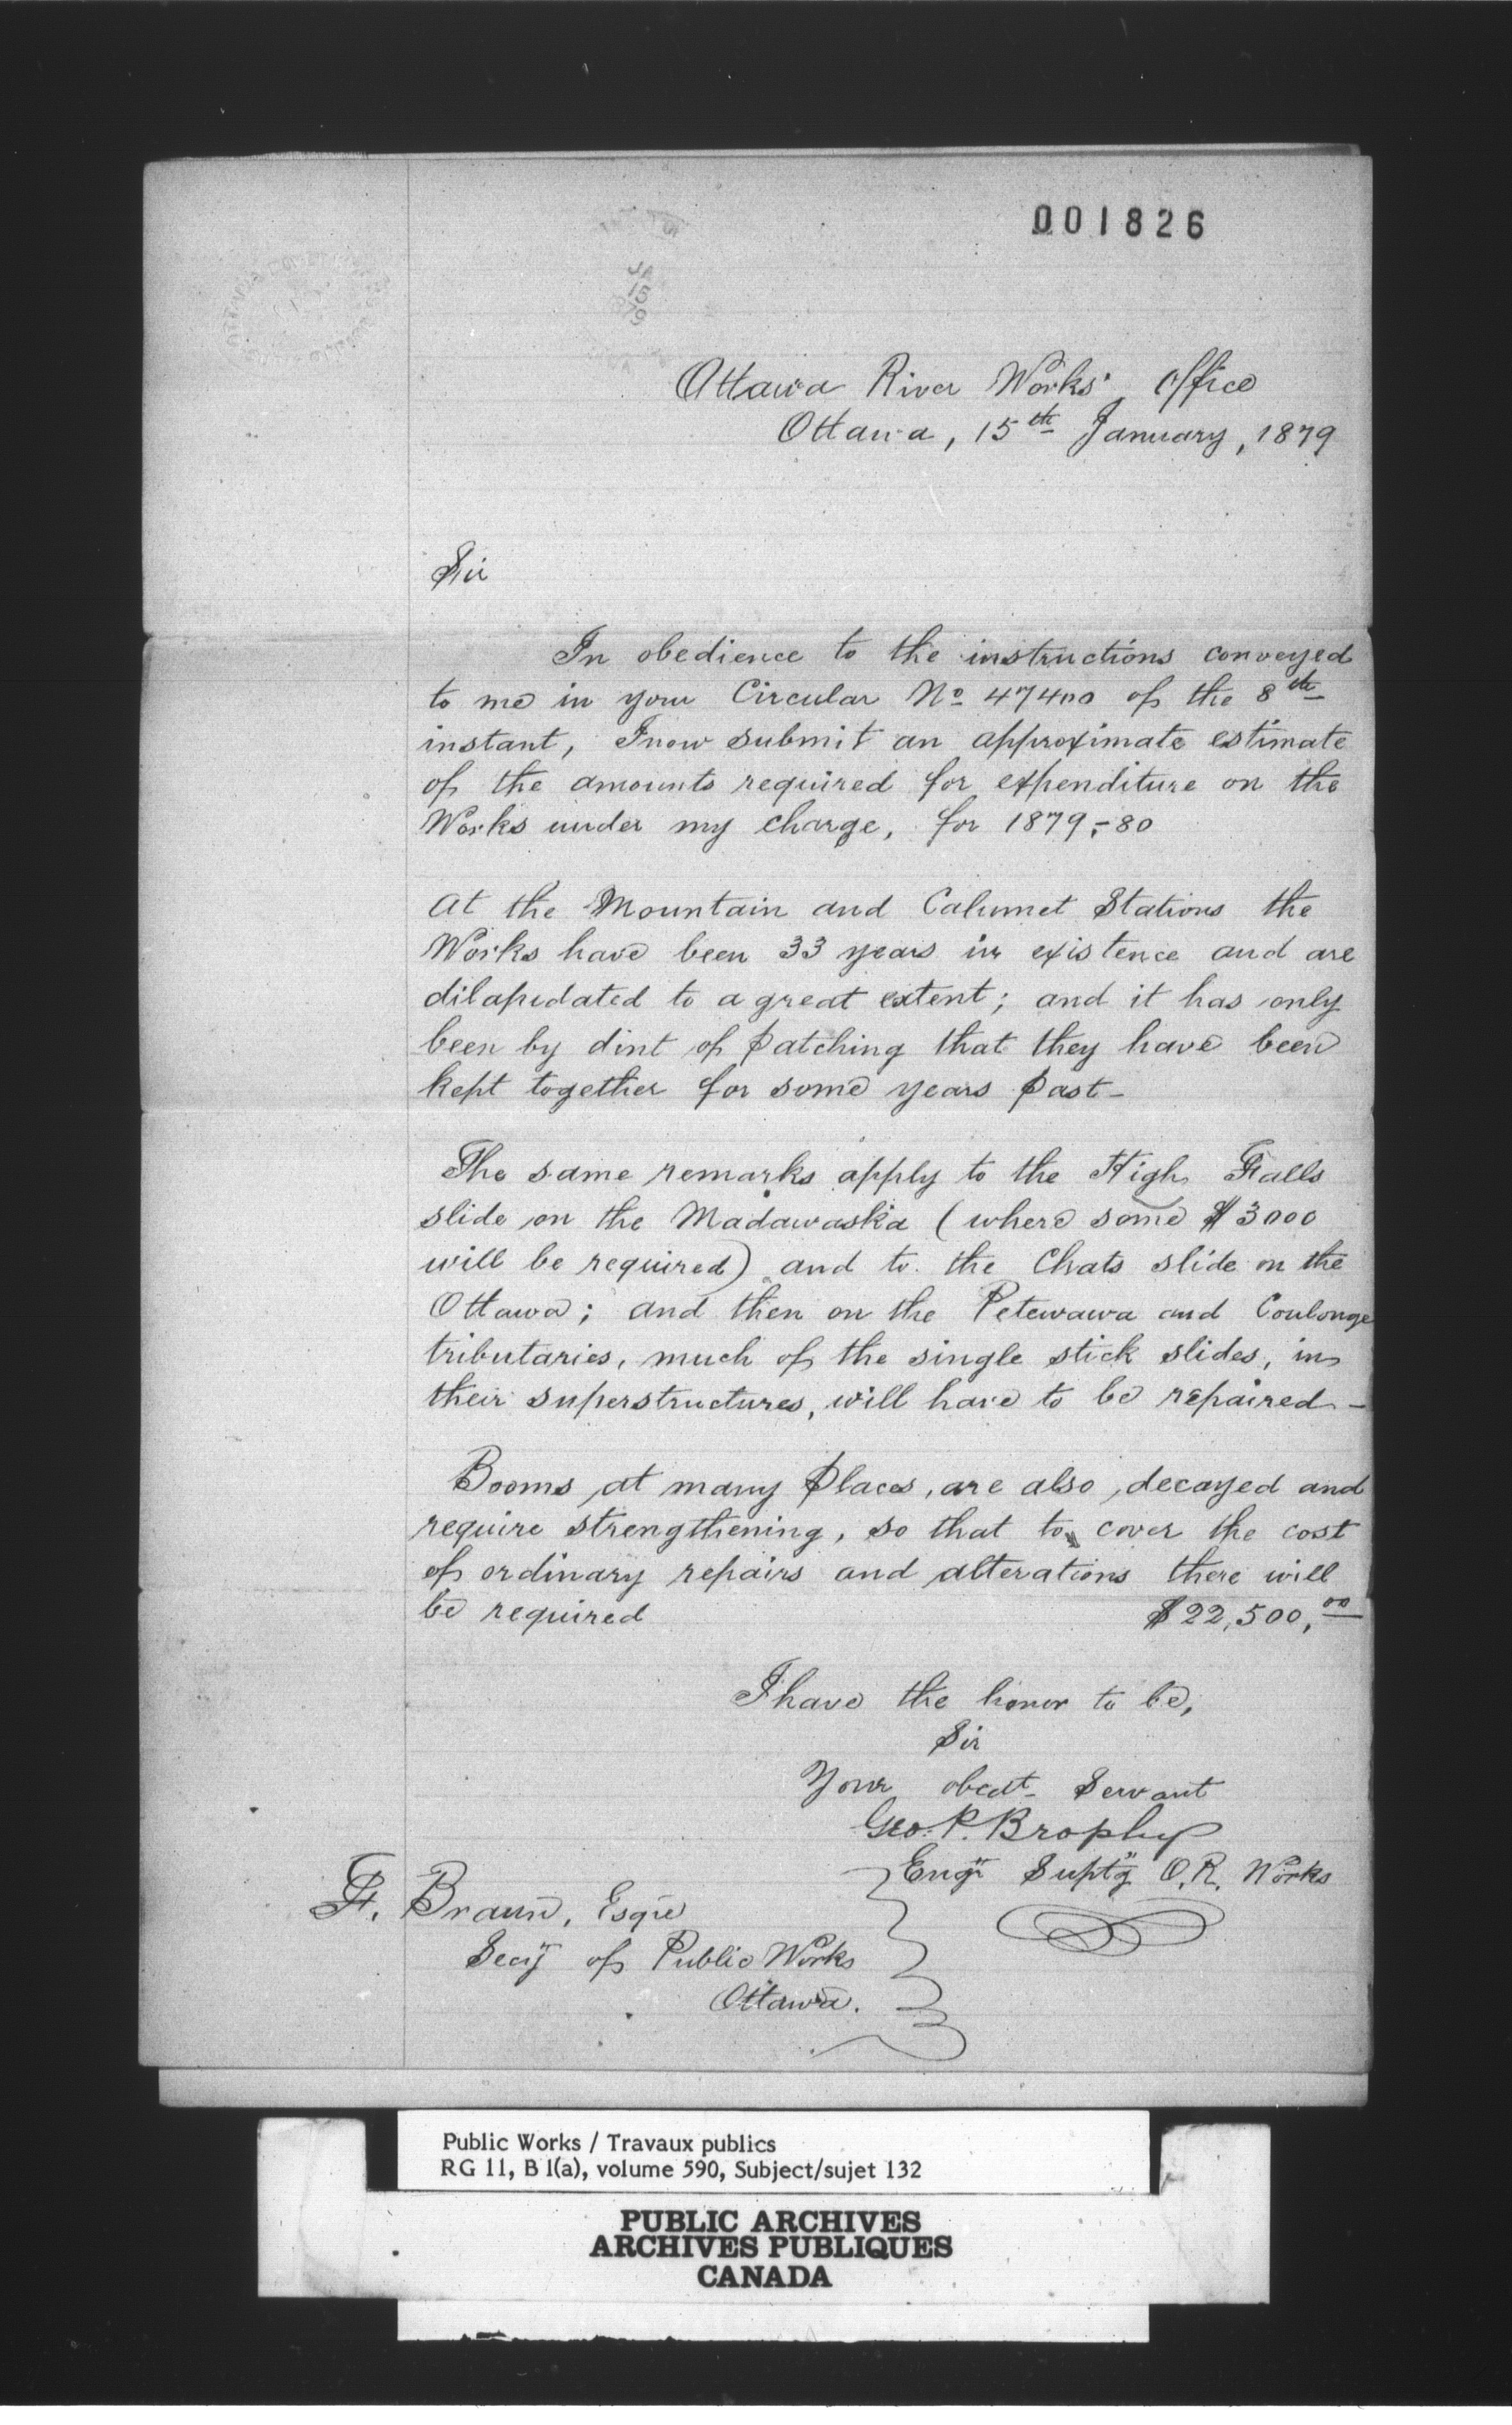 001826
JA
15
79
Ottawa River Works' Office
Ottawa, 15th January, 1879
Sir
In obedience to the instructions conveyed
to me in your Circular No 47400 of the 8th
instant, I now submit an approximate estimate
of the amounts required for expenditure on the
Works under my charge, for 1879,-80
At the Mountain and Calumet Stations the
Works have been 33 years in existence and are
dilapidated to a great extent; and it has only
been by dint of patching that they have been
kept together for some years past-
The same remarks apply to the High Falls
slide on the Madawaska (where some $3000
will be required) and to the Chats slide on the
Ottawa; and then on the Petewawa and Coulonge
tributaries, much of the single stick slides, in
their superstructures, will have to be repaired-
Booms at many places, are also decayed and
require strengthening, so that to cover the cost
of ordinary repairs and alterations there will
be required $22,500,00
I have the honor to be,
Sir
Your obedt- Servant
Geo. P. Brophy
Engr Suptg O.R. Works
F. Braun, Esqre
Secy of Public Works
Ottawa.
Public Works / Travaux publics
RG 11, B 1(a), volume 590, Subject/sujet 132
PUBLIC ARCHIVES
ARCHIVES PUBLIQUES
CANADA